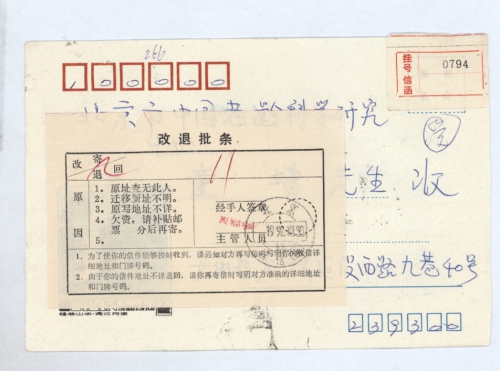 266
100000
挂号信函
0794
北京市中国老龄科学研究
先生 收
改退批条
改 寄 退 回
原因
1. 原址查无此人。
2. 迁移新址不明。
3. 原写地址不详。
4. 欠资，请补贴邮票 分后再寄。
5.
经手人签章
主管人员
1. 为了使你的信件能够按时收到，请通知对方再写你时写明你的收信详细地址和门牌号码。
2. 由于你的信件地址不详退回，请你再寄信时写明对方准确的详细地址和门牌号码。
段西路九巷40号
239300